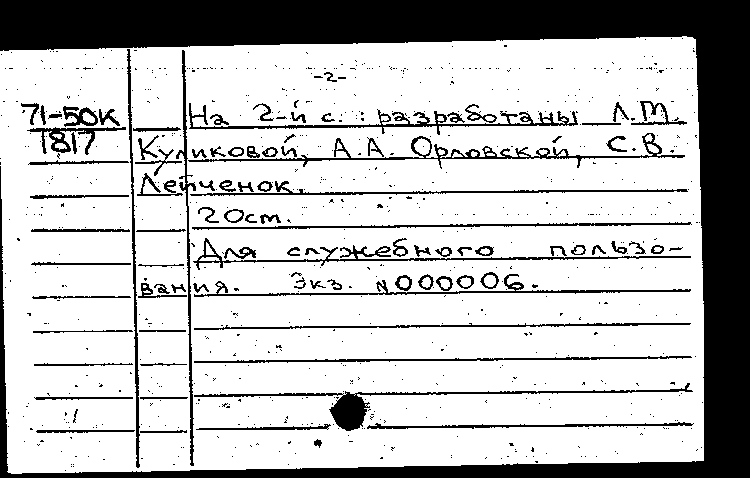 -2-
71-50К На 2-й с.: разработаны Л.М.
1817 Куликовой, А.А. Орловской, С.В.
Лейченок.
20см.
Для служебного пользо-
вания. Экз. N000006.